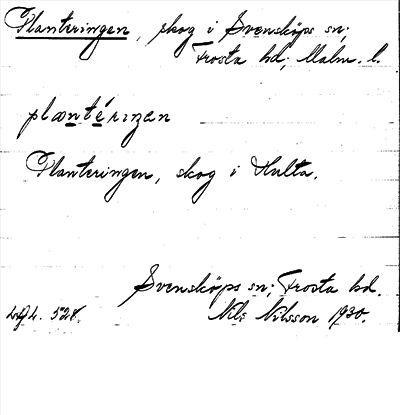 Planteringen, skog i Svensköps sn;
Frosta hd; Malm. l.
plænté́rıŋæn
Planteringen, skog i Hulta.
Svensköps sn; Frosta hd.
Nils Nilsson 1930.